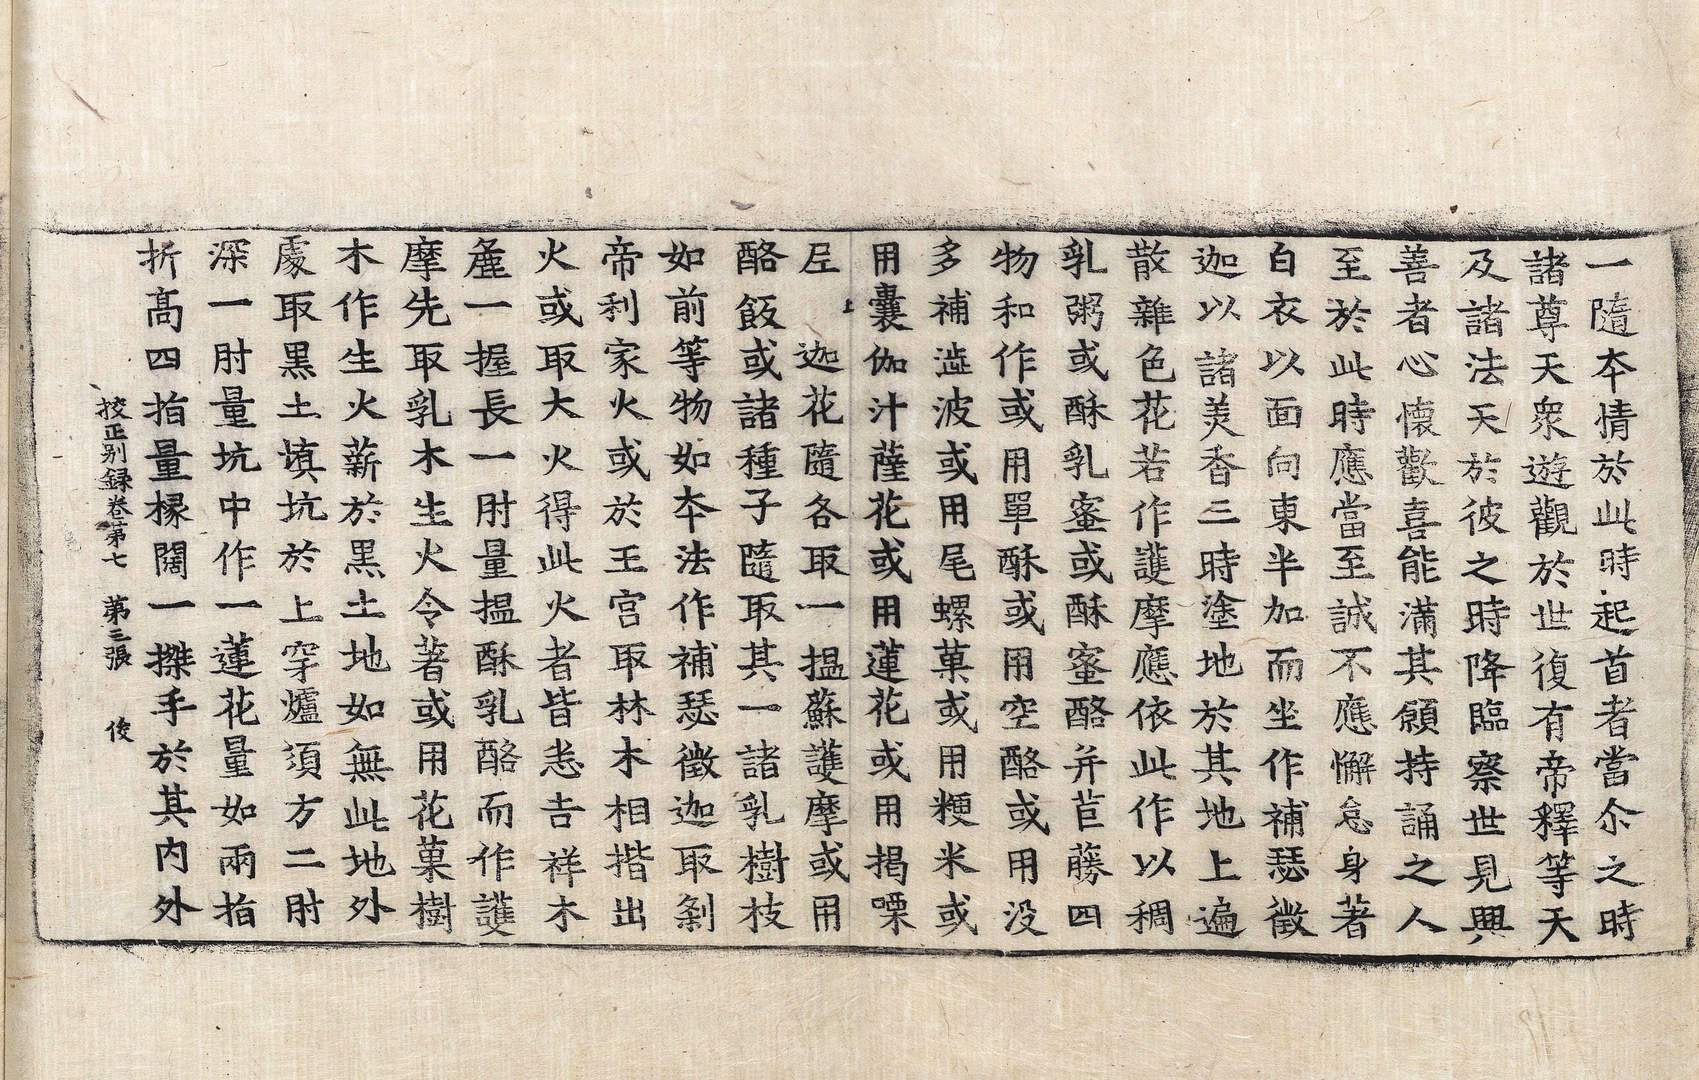 一隨夲情於此時起首者當尒之時
諸尊天衆遊觀於世復有帝釋等天
及諸法天於彼之時降臨察世見興
善者心懷歡喜能滿其願持誦之人
至於此時應當至誠不應懈怠身著
白衣以面向東半加而坐作補瑟徵
迦以諸美香三時塗地於其地上遍
散雜色花若作護摩應依此作以稠
乳粥或酥乳蜜或酥蜜酪并苣蕂四
物和作或用單酥或用空酪或用没
多補澁波或用尾螺菓或用粳米或
用嚢伽汁薩花或用蓮花或用揭㗚
尼上迦花隨各取一揾蘇護摩或用
酪飯或諸種子隨取其一諸乳樹枝
如前等物如夲法作補瑟徵迦取剎
帝利家火或於王宫取林木相揩出
火或取大火得此火者皆悉吉祥木
麁一握長一肘量揾酥乳酪而作護
摩先取乳木生火令著或用花菓樹
木作生火薪於黒土地如無此地外
處取黒土填坑於上穿爐須方二肘
深一肘量坑中作一蓮花量如兩指
折高四指量椽闊一搩手於其内外
挍正别録卷第七 第三張 俊